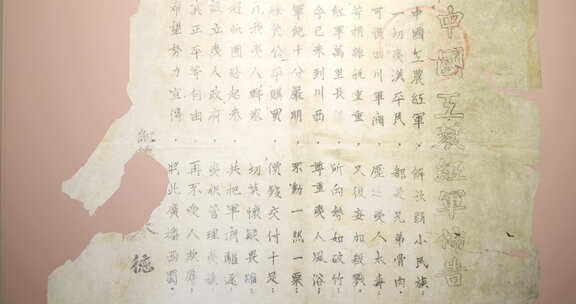 中國工農紅軍佈告
中國工農紅軍．解放弱小民族．
一切夷漢平民．都是兄弟骨肉．
可恨四川軍閥．壓迫夷人太毒．
苛捐雜稅重重．又復妄加殺戮．
紅軍萬里長　．所向勢如破竹．
今已來到川西．尊重夷人風俗．
軍紀十分嚴明．不動一絲一粟．
糧食公平購買．價錢交付十足．
　我夷人群衆．切莫懷疑畏縮．
　　團結起來．共把軍閥驅逐．
設立夷人政府．夷族管理夷族．
真正平等自由．再不受人欺辱．
希望努力宣傳．將此廣播西蜀．
德